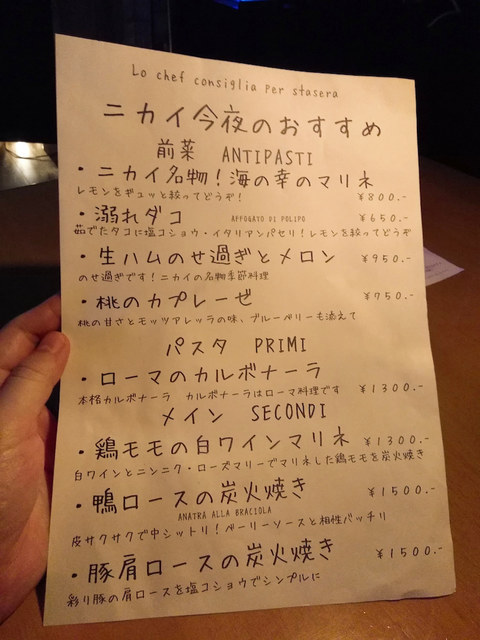 Lo chef consiglia per stasera
ニカイ今夜のおすすめ
前菜 ANTIPASTI
・ニカイ名物！海の幸のマリネ
レモンをギュッと絞ってどうぞ！ ¥800.-
・溺れダコ AFFOGATO DI POLIPO ¥650.-
茹でたタコに塩コショウ・イタリアンパセリ！レモンを絞ってどうぞ
・生ハムのせ過ぎとメロン ¥950.-
のせ過ぎです！ニカイの名物季節料理
・桃のカプレーゼ ¥750.-
桃の甘さとモッツアレッラの味、ブルーベリーも添えて
パスタ PRIMI
・ローマのカルボナーラ
本格カルボナーラ カルボナーラはローマ料理です ¥1300.-
メイン SECONDI
・鶏モモの白ワインマリネ ¥1300.-
白ワインとニンニク・ローズマリーでマリネした鶏モモを炭火焼き
・鴨ロースの炭火焼き ¥1500.-
ANATRA ALLA BRACIOLA
皮サクサクで中シットリ！ベーリーソースと相性バッチリ
・豚肩ロースの炭火焼き ¥1500.-
彩り豚の肩ロースを塩コショウでシンプルに